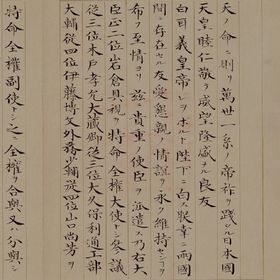 天ノ命ニ則リ萬世一系ノ帝祚ヲ踐ル日本國
天皇睦仁敬テ威望隆盛ナル良友
白耳義皇帝
陛下ニ白ス朕幸ニ両國
間ニ存在セル友愛懇親ノ情誼ヲ永ク維持センヿヲ
希フ至情ヨリ茲ニ貴重ノ使臣ヲ派遣ス乃右大
臣正二位岩倉具視ヲ特命全權大使トシ參議
從三位木戸孝允大藏卿從三位大久保利通工部
大輔從四位伊藤博文外務少輔從四位山口尚芳ヲ
特命全權副使トシ之ニ全權ヲ合與シ又ハ分與シ